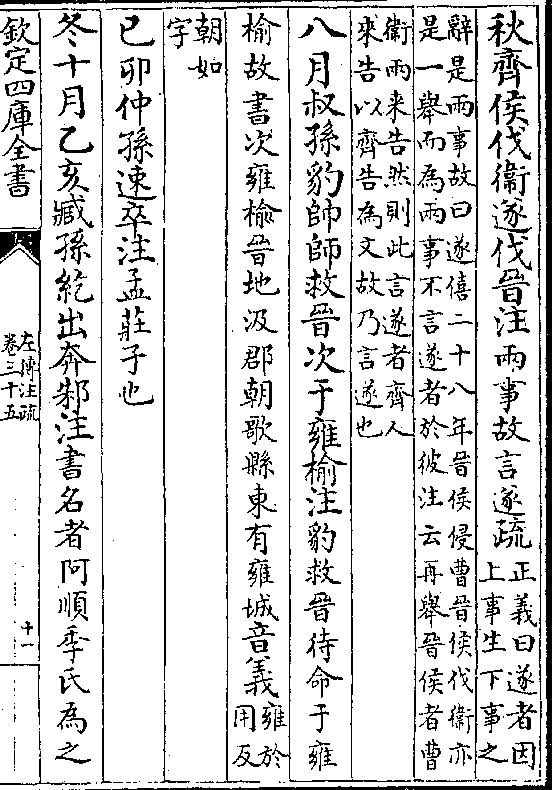 秋齊侯伐衞遂伐晉注兩事故言遂疏正義曰遂者因
上事生下事之
辭是兩事故曰遂僖二十八年晉侯侵曹晉侯伐衞亦
是一舉而為兩事不言遂者於彼注云再舉晉侯者曹
衞兩来告然則此言遂者齊人
來告以齊告為文故乃言遂也
八月叔孫豹帥師救晉次于雍榆注豹救晉待命于雍
榆故書次雍榆晉地汲郡朝歌縣東有雍城音義雍於
用反
朝如
字
已卯仲孫速卒注孟莊子也
冬十月乙亥臧孫紇出奔邾注書名者阿順季氏為之
欽定四庫全書
左傳注疏
卷三十五
十一